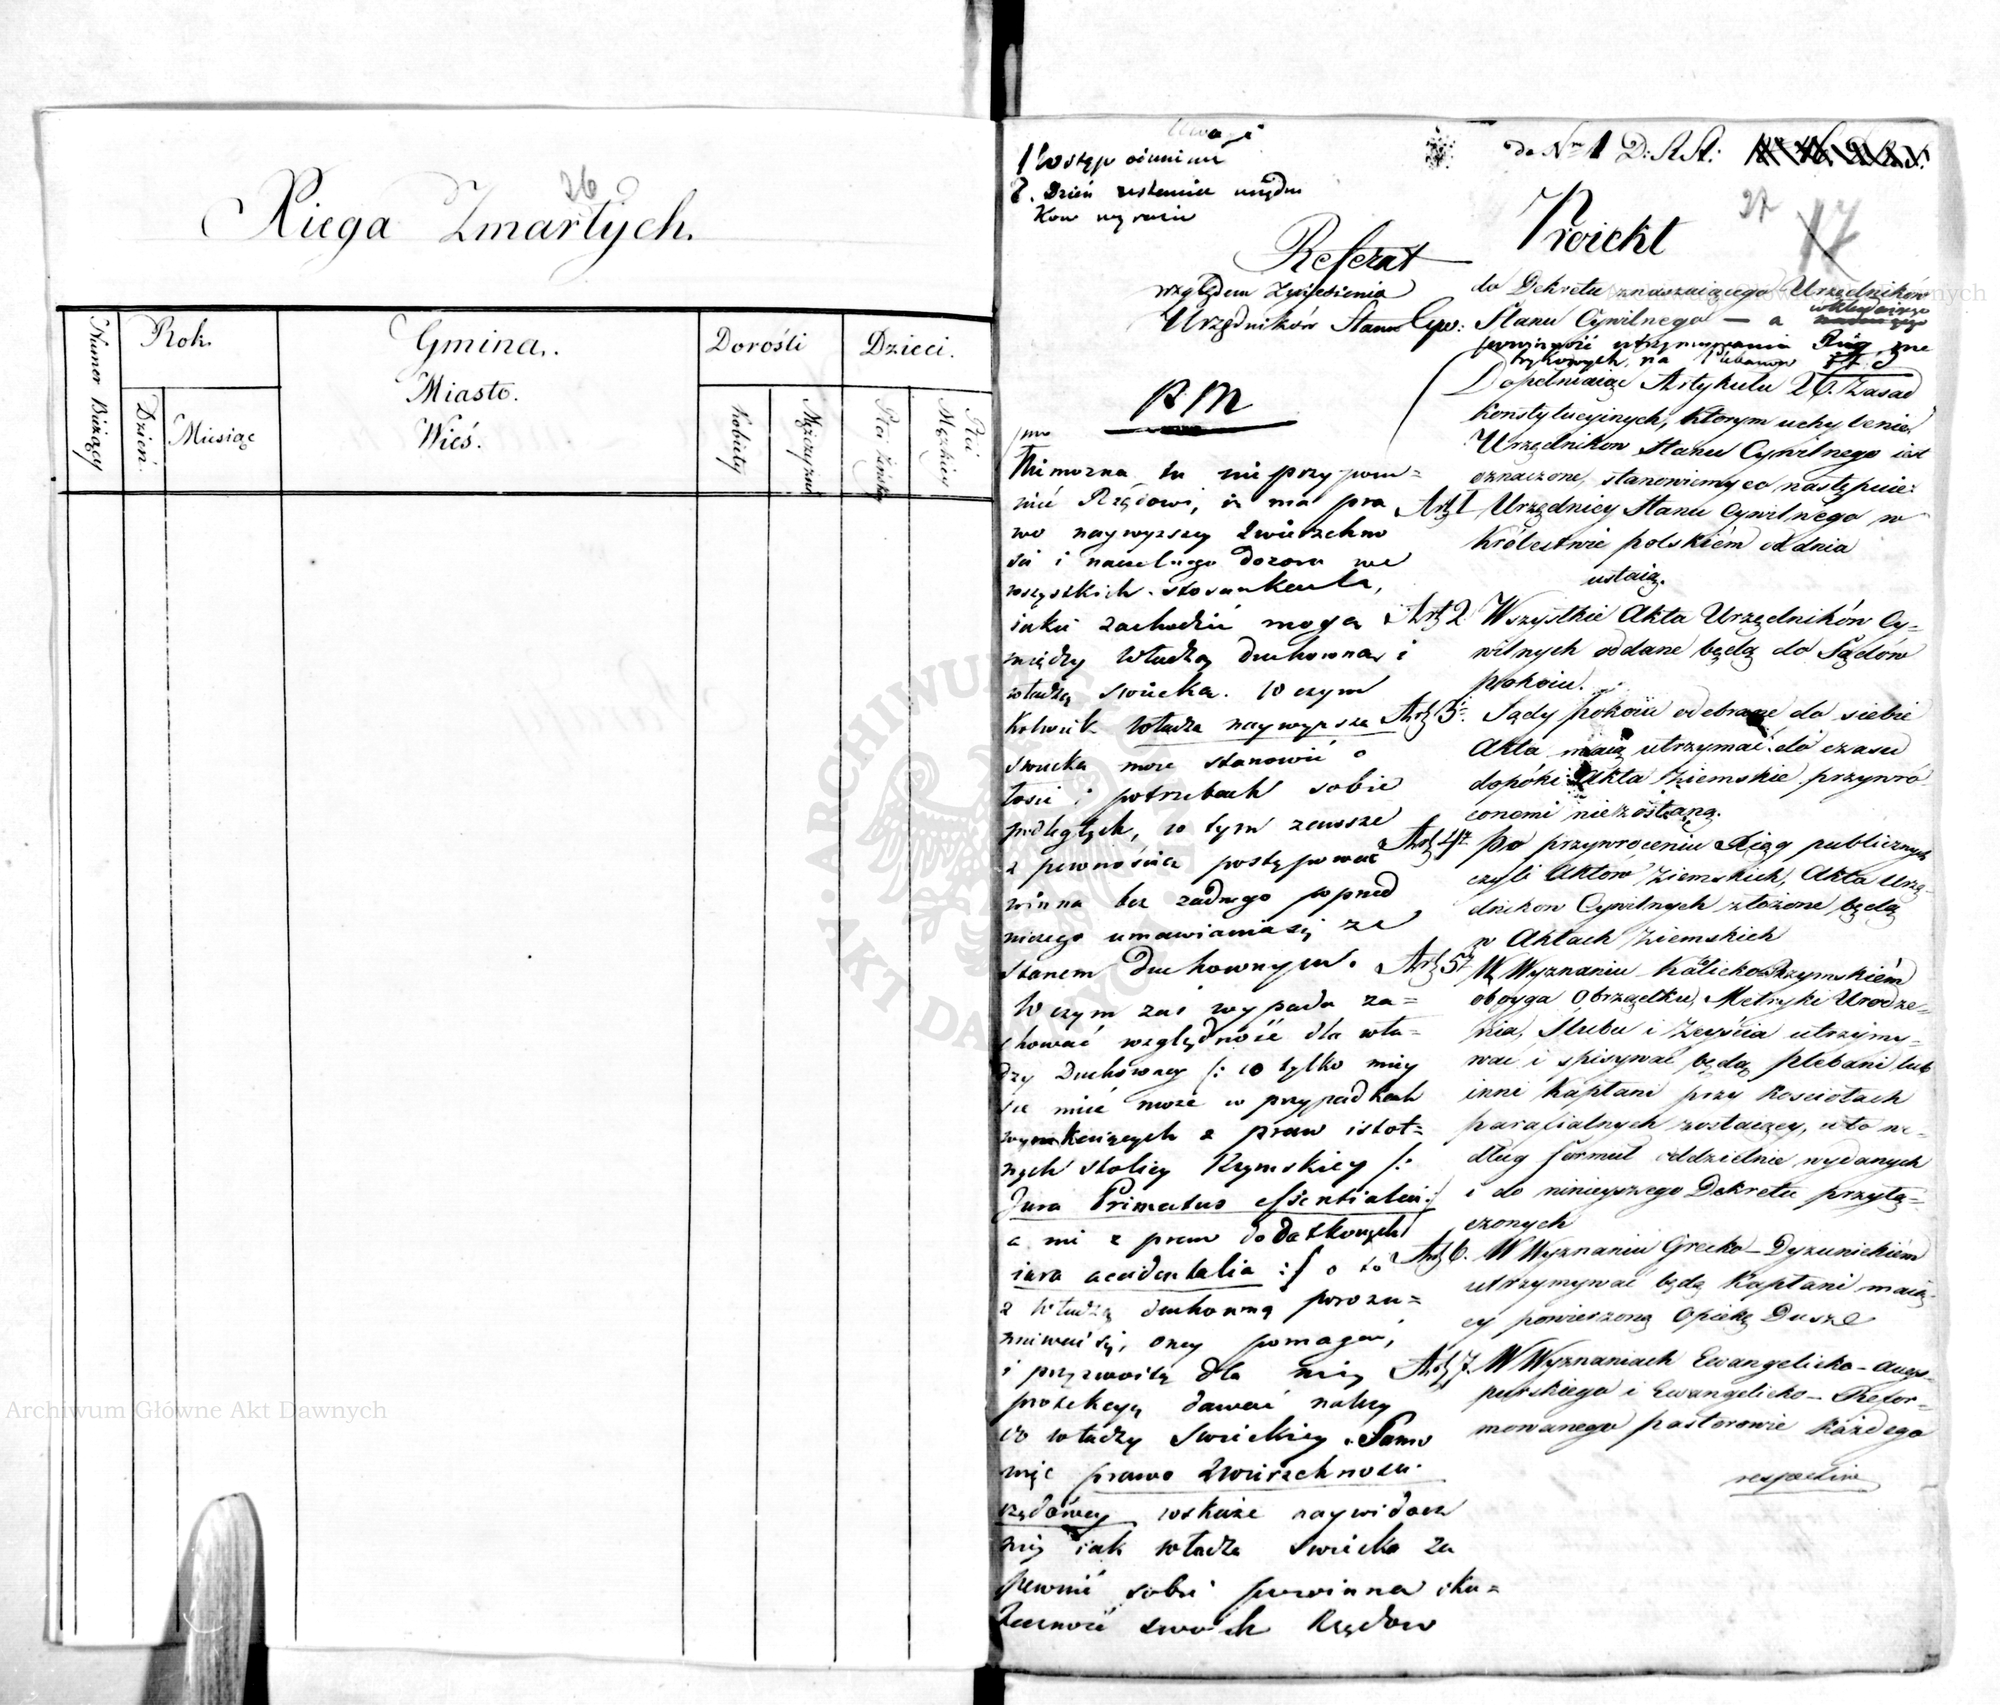 26
Xięga Zmarłych.
Numer Bieżący
Rok.
Dzień.
Miesiąc
Gmina.
Miasto.
Wieś.
Dorośli
Kobiety
Mężczyzni
Dzieci.
Płci żeńskiey
Płci Męzkiey
Archiwum Główne Akt Dawnych
Uwagi
1 Wstęp odmienić
2. Dzień ustania urzędni
Kow wyrazić
Referat
względem Zniesienia
Urzędników Stanu Cyw:
P.M
Nimozna tu nieprzypom=
nieć Rządowi, iż ma pra
wo naywyższey Zwierzchno
ści i naczelnego dozoru we
wszystkich stosunkach,
iakie zachodzić mogą
między Władzą duchowną i
władzą świecką. W czym
kolwiek Władza naywyższa
świecka może stanowić o
losie i potrzebach sobie
podległych, w tym zawsze
z pewnością postępować
winna bez żadnego poprzed
niczego umawiania się ze
stanem duchownym.
W czym zaś wypada za=
chować względność dla wła=
dzy Duchowney /: co tylko miey
sce mieć może w przypadkach
wynikaiących z praw istot=
nych stolicy Rzymskiey /:
Jura Primatus essentialia :/
a nie z praw dodatkowych
iura accidentalia :/ o to
z Władzą duchowną porozu=
miewać się, oney pomagać,
i przyzwoitą dla niey
protekcyą dawać należy
do władzy Świeckiey. Samo
więc prawo Zwierzchności
rządowey wskaże naywidocz
niey iak władza świecka za
pewnić sobie powinna sku=
teczność swoich Rządow
do Nru 1 D: R.A:
27
17
Proiekt
do Dekretu znaszaiącego Urzędników
Stanu Cywilnego — a wkładaiącego
powinność utrzymywania Xiąg me
trykowych, na Plebanow
Dopełniaiąc Artykułu 26. Zasad
konstytucyinych, którym uchylenie
Urzędnikow Stanu Cywilnego iest
oznaczone, stanowimy co następuie:
Art 1 Urzędnicy Stanu Cywilnego w
Królestwie polskiém od dnia
ustaią.
Art 2 Wszystkie Akta Urzędników Cy=
wilnych oddane będą do Sądow
pokoiu.
Art 3. Sądy pokoiu odebrane do siebie
Akta maią utrzymać do czasu
dopóki Akta Ziemskie przywró
conemi niezostaną.
Art 4. Po przywroceniu Xiąg publicznych
czyli Aktów Ziemskich, Akta Urzę=
dnikow Cywilnych złożone będą
w Aktach Ziemskich
Art 5. W Wyznaniu Katolicko Rzymskiém
oboyga Obrządku, Metryki Urodze=
nia, Slubu i Zeyścia utrzymy=
wać i spisywać będą plebani lub
inni Kapłani przy Kosciołach
parafialnych zostaiący, a to we=
dług formuł oddzielnie wydanych
i do ninieyszego Dekretu przyłą=
czonych
Art 6. W Wyznaniu Grecko-Dyzunickiém
utrzymywać będą Kapłani maią=
cy powierzoną Opiekę Dusz
Art 7. W Wyznaniach Ewangelicko-Augs=
purskiego i Ewangelicko-Refor=
mowanego pastorowie każdego
respective